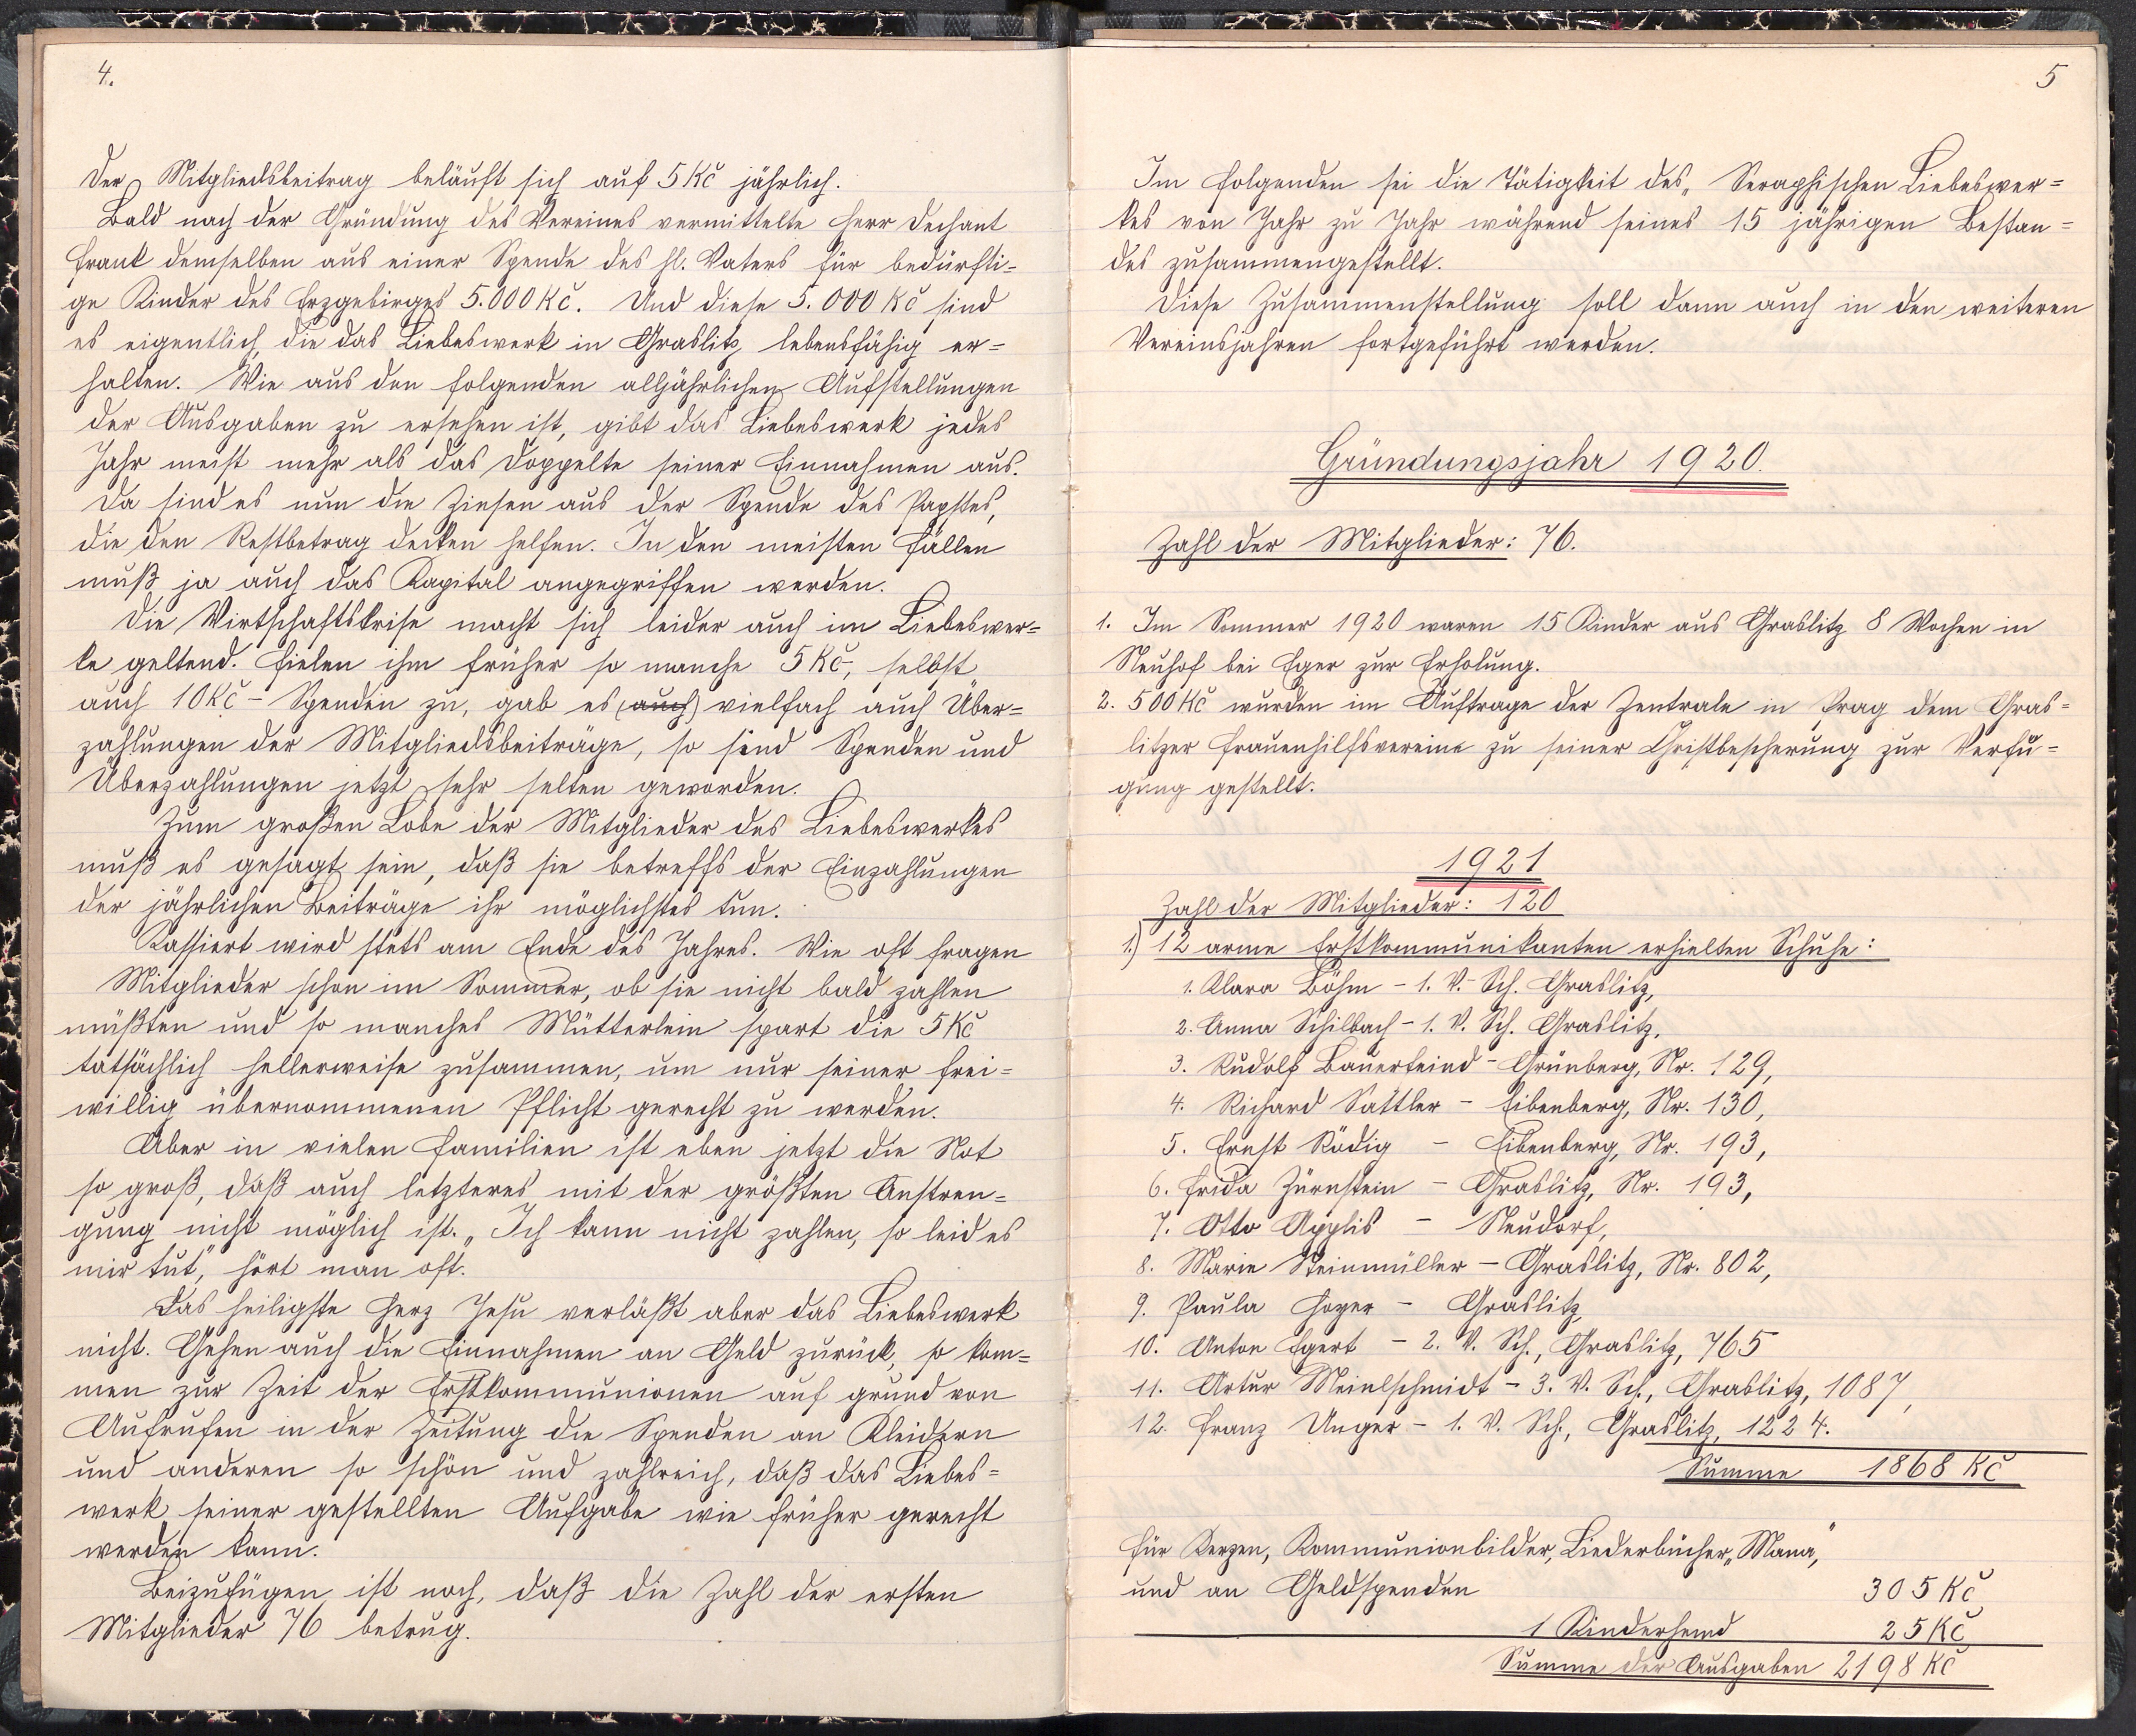 4.
Der Mitgliedsbeitrag beläuft sich auf 5 Kč jährlich.
Bald nach der Gründung des Vereines vermittelte Herr Dechant
Frank demselben aus einer Spende des hl. Vaters für bedürfti-
ge Kinder des Erzgebirges 5.000 Kč. Und diese 5.000 Kč sind
es eigentlich, die das Liebeswerk in Graslitz lebensfähig er-
halten. Wie aus den folgenden alljährlichen Aufstellungen
der Ausgaben zu ersehen ist, gibt das Liebeswerk jedes
Jahr meist mehr als das Doppelte seiner Einnahmen aus.
Da sind es nun die Zinsen aus der Spende des Papstes,
die den Restbetrag decken helfen. In den meisten Fällen
muß ja auch das Kapital angegriffen werden.
Die Wirtschaftskrise macht sich leider auch im Liebeswer-
ke geltend. Fielen ihm früher so manche 5 Kč-, selbst
auch 10 Kč - Spenden zu, gab es (auch) vielfach auch Über-
zahlungen der Mitgliedsbeiträge, so sind Spenden und
Überzahlungen jetzt sehr selten geworden.
Zum großen Lobe der Mitglieder des Liebeswerkes
muß es gesagt sein, daß sie betreffs der Einzahlungen
der jährlichen Beiträge ihr möglichstes tun.
Kassiert wird stets am Ende des Jahres. Wie oft fragen
Mitglieder schon im Sommer, ob sie nicht bald zahlen
müßten und so manches Mütterlein spart die 5 Kč
tatsächlich hellerweise zusammen, um nur seiner frei-
willig übernommenen Pflicht gerecht zu werden.
Aber in vielen Familien ist eben jetzt die Not
so groß, daß auch letzteres mit der größten Anstren-
gung nicht möglich ist. „Ich kann nicht zahlen, so leid es
mir tut“, hört man oft.
Das heiligste Herz Jesu verläßt aber das Liebeswerk
nicht. Gehen auch die Einnahmen an Geld zurück, so kom-
men zur Zeit der Erstkommunionen auf grund von
Aufrufen in der Zeitung die Spenden an Kleidern
und anderen so schön und zahlreich, daß das Liebes-
werk seiner gestellten Aufgabe wie früher gerecht
werden kann.
Beizufügen ist noch, daß die Zahl der ersten
Mitglieder 76 betrug.
5
Im folgenden sei die Tätigkeit des „Seraphischen Liebeswer-
kes von Jahr zu Jahr während seines 15 jährigen Bestan-
des zusammengestellt.
Diese Zusammenstellung soll dann auch in den weiteren
Vereinsjahren fortgeführt werden.
Gründungsjahr 1920.
Zahl der Mitglieder: 76.
1. Im Sommer 1920 waren 15 Kinder aus Graslitz 8 Wochen in
Neuhof bei Eger zur Erholung.
2. 500 Kč wurden im Auftrage der Zentrale in Prag dem Gras-
litzer Frauenhilfsvereine zu seiner Christbescherung zur Verfü-
gung gestellt.
1921
Zahl der Mitglieder: 120
1.) 12 arme Erstkommunikanten erhielten Schuhe:
1. Klara Böhm - 1. V.-Sch. Graslitz,
2. Anna Schilbach - 1. V. Sch. Graslitz,
3. Rudolf Bauerfeind - Grünberg, Nr. 129,
4. Richard Sattler - Eibenberg, Nr. 130,
5. Ernst Rödig - Eibenberg, Nr. 193,
6. Frida Zürnstein - Graslitz, Nr. 193,
7. Otto Applis - Neudorf,
8. Marie Steinmüller - Graslitz, Nr. 802,
9. Paula Hoyer - Graslitz,
10. Anton Egert - 2. V. Sch., Graslitz, 765
11. Artur Meinlschmidt - 3. V. Sch., Graslitz, 1087,
12. Franz Unger - 1. V. Sch., Graslitz, 1224.
Summe 1868 Kč
Für Kerzen, Kommunionbilder, Liederbücher „Mana“,
und an Geldspenden 305 Kč
1 Kinderhemd 25 Kč
Summe der Ausgaben 2198 Kč